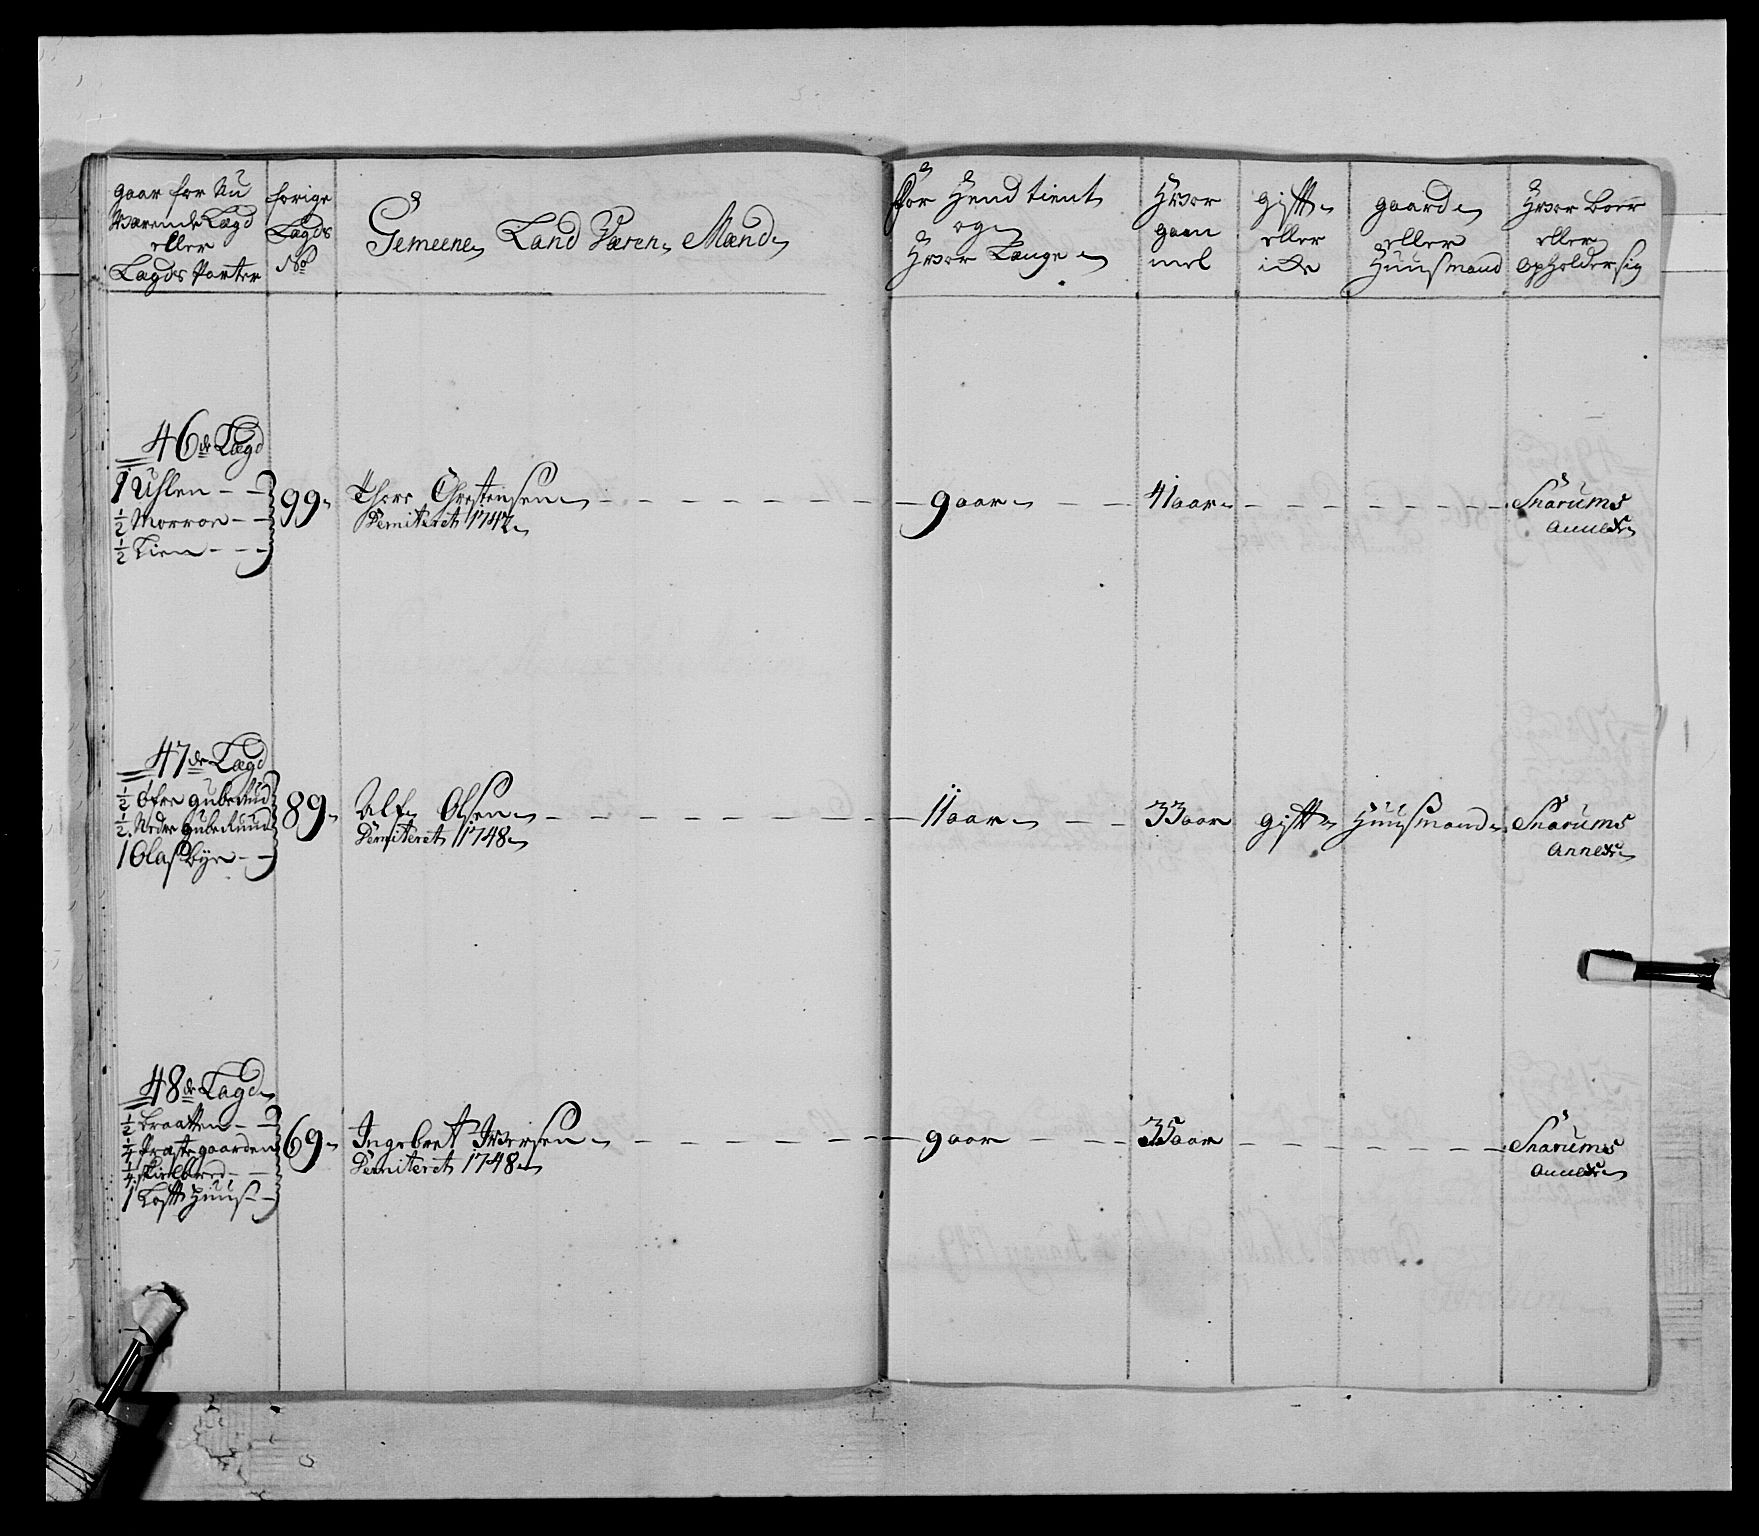 gaar for Nu
Wærende Lægd
eller
Lægds Parter
forige
Lægds
No
Gemeene Land Væren Mænd
For Hend tient
og
Hvor Længe
Hvor
gam
mel
gift
eller
icke
gaard
eller
Huusmand
Hvor Boer
eller
opholder sig
46de Lægd
1 Uhlen
1/2 Morron
1/2 Lien
99
Thore Christensen
Demiteret 1742
9 aar
41 aar
Snarums
Annex
47de Lægd
1/2 Øfre gubelund
1/2 Nedre gubelund
1 Olasbye
89
Alf Olsen
Demiteret 1748
11 aar
33 aar
gift
Huusmand
Snarums
Annex
48de Lægd
1/2 Braatten
1/4 Præstegaarden
1/4
1 Loftthuus
69
Ingebret Iversen
Demiteret 1748
9 aar
35 aar
Snarums
Annex